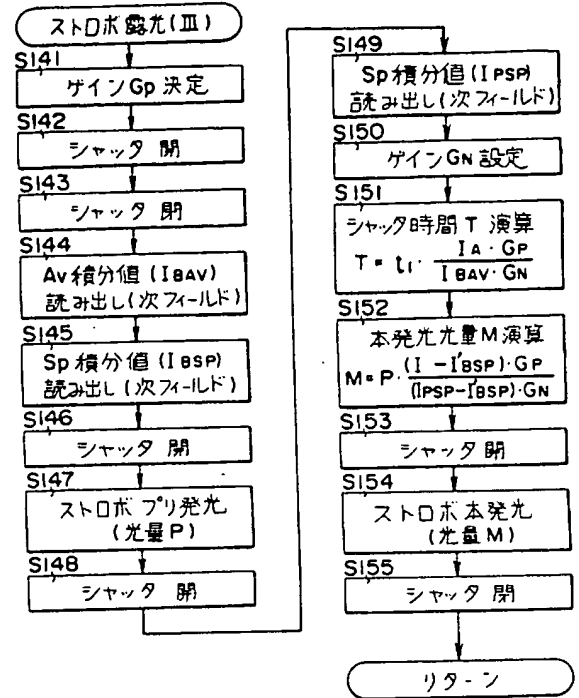 ストロボ露光(III)
S141
ゲインGp 決定
S142
シャッタ 開
S143
シャッタ 閉
S144
Av積分値(IBAV)
読み出し(次フィールド)
S145
Sp積分値(IBSP)
読み出し(次フィールド)
S146
シャッタ 開
S147
ストロボ プリ発光
(光量P)
S148
シャッタ 開
S149
Sp積分値(IPSP)
読み出し(次フィールド)
S150
ゲインGN 設定
S151
シャッタ時間 T 演算
T = t1 · IA · GP / IBAV · GN
S152
本発光光量M演算
M = P · (I - I'BSP) · GP / (IPSP - I'BSP) · GN
S153
シャッタ 開
S154
ストロボ 本発光
(光量M)
S155
シャッタ 閉
リターン